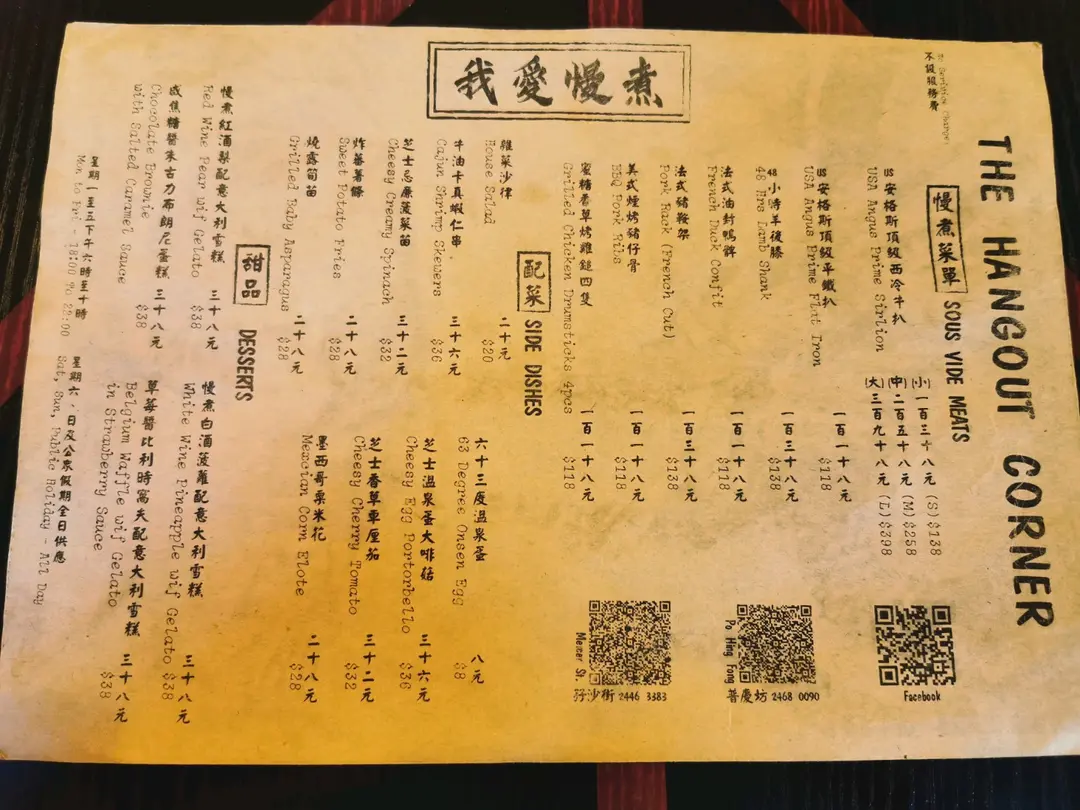 THE HANGOUT CORNER
不設服務費
慢煮菜單 SOUS VIDE MEATS
US安格斯頂級西冷牛扒 (小) 一百三十八元 (S) $138
USA Angus Prime Sirlion (中) 二百五十八元 (M) $258
(大) 三百九十八元 (L) $398
US安格斯頂級平鐵扒 一百一十八元
USA Angus Prime Flat Iron $118
48小時羊後膝 一百三十八元
48 Hrs Lamb Shank $138
法式油封鴨髀 一百一十八元
French Duck Confit $118
法式豬鞍架 一百三十八元
Pork Rack (French Cut) $138
美式煙烤豬仔骨 一百一十八元
BBQ Pork Ribs $118
蜜糖香草烤雞鎚四隻 一百一十八元
Grilled Chicken Drumsticks 4pcs $118
Facebook
Po Hing Fong
普慶坊 2468 0090
Mercer St.
孖沙街 2446 3383
我愛慢煮
配菜 SIDE DISHES
雜菜沙律 二十元
House Salad $20
牛油卡真蝦仁串 三十六元
Cajun Shrimp Skewers $36
芝士忌廉菠菜苗 三十二元
Cheesy Creamy Spinach $32
炸蕃薯條 二十八元
Sweet Potato Fries $28
燒露筍苗 二十八元
Grilled Baby Asparagus $28
六十三度溫泉蛋 八元
63 Degree Onsen Egg $8
芝士溫泉蛋大啡菇 三十六元
Cheesy Egg Portorbello $36
芝士香草車厘茄 三十二元
Cheesy Cherry Tomato $32
墨西哥粟米花 二十八元
Mexcian Corn Elote $28
甜品 DESSERTS
慢煮紅酒梨配意大利雪糕 三十八元
Red Wine Pear wif Gelato $38
咸焦糖醬朱古力布朗尼蛋糕 三十八元
Chocolate Brownie $38
with Salted Caramel Sauce
慢煮白酒菠蘿配意大利雪糕 三十八元
White Wine Pineapple wif Gelato $38
草莓醬比利時窩夫配意大利雪糕 三十八元
Belgium Waffle wif Gelato $38
in Strawberry Sauce
星期一至五下午六時至十時
Mon to Fri - 18:00 To 22:00
星期六，日及公眾假期全日供應
Sat, Sun, Public Holiday - All Day